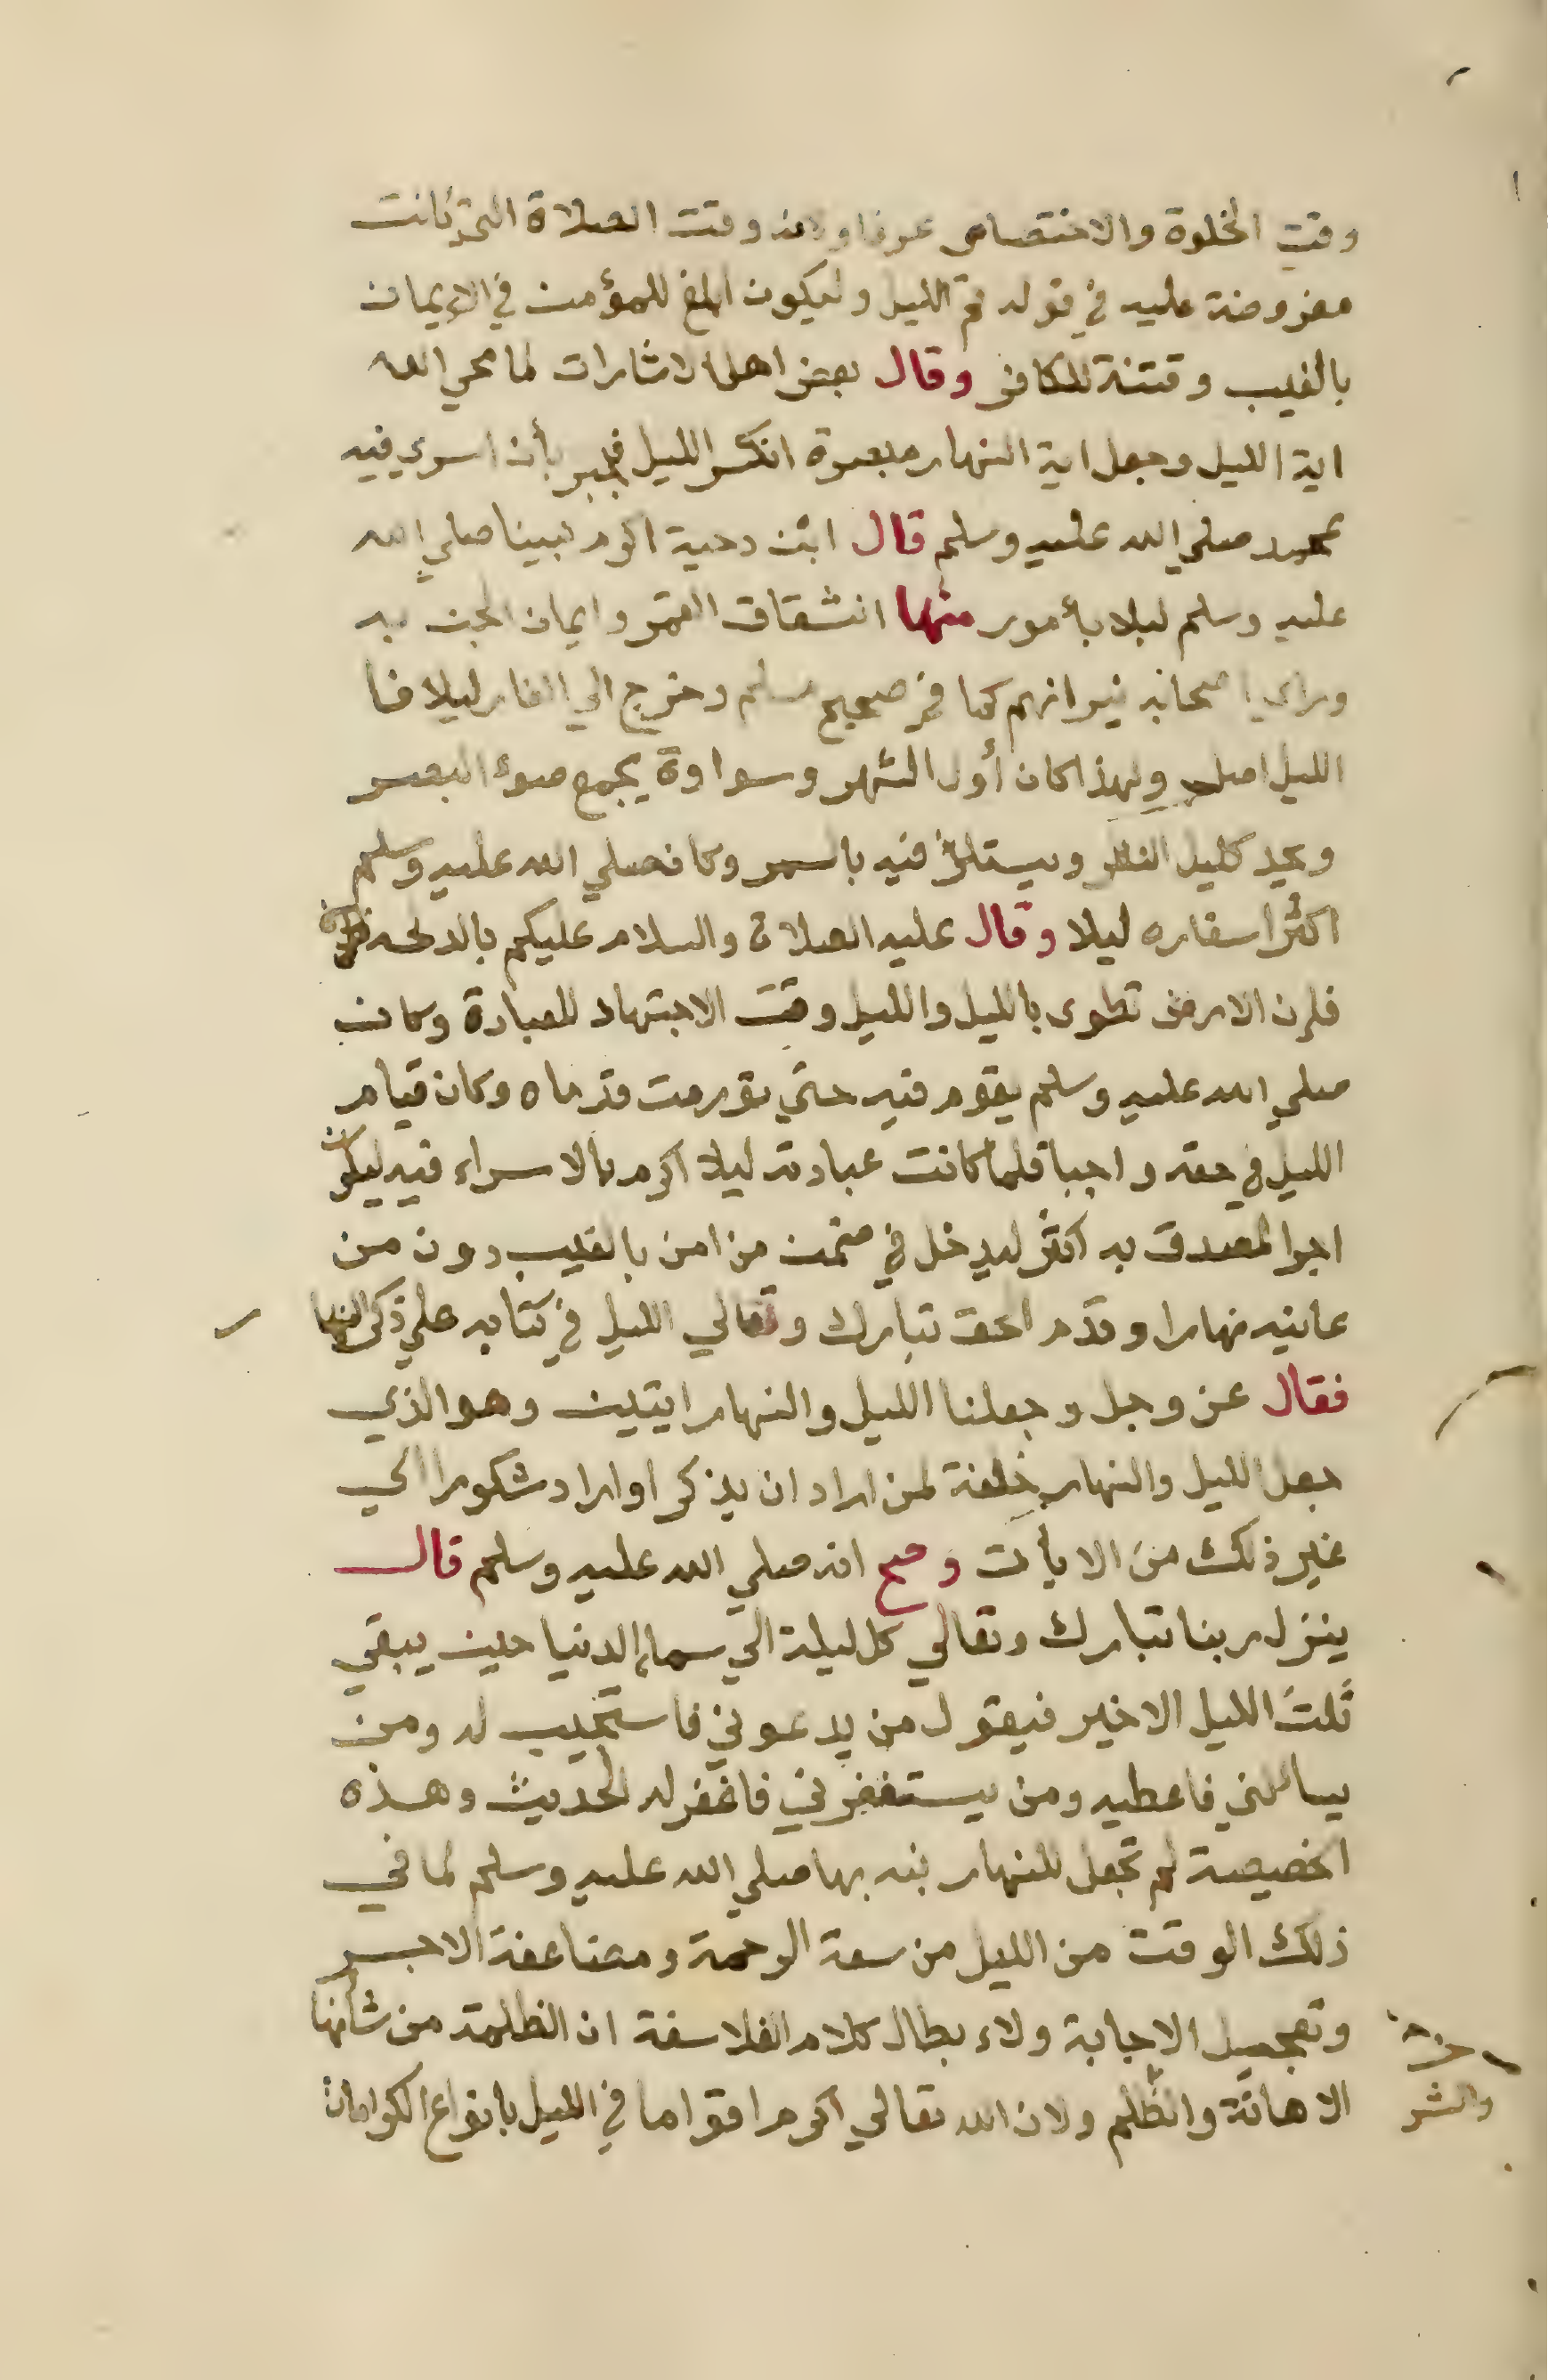 وقت الخلوة والاختصاص عرفا ولانه وقت الصلاة التي كانت
مفروضة عليه في قوله قم الليل وليكون ابلغ للمؤمن في الإيمان
بالغيب وفتنة للكافر وقال بعض اهل الاشارات لما محي الله
اية الليل وجعل اية النهار مبصرة انكسر الليل فجبر بأن اسري فيه
بمحمد صلي الله عليه وسلم قال ابن دحية اكرم نبينا صلي الله
عليه وسلم ليلا بأمور منها انشقاق القمر وايمان الجن به
وراي اصحابه نيرانهم كما في صحيح مسلم وخرج الي الغار ليلا فا
الليل اصل ولهذا كان أول الشهر وسواده يجمع ضوء البصر
ويحد كليل النظر ويستلذ فيه بالسمر وكان صلي الله عليه وسلم
اكثر اسفاره ليلا وقال عليه الصلاة والسلام عليكم بالدلجه
فإن الارض تطوى بالليل والليل وقت الاجتهاد للعبادة وكان
صلي الله عليه وسلم يقوم فيه حتي تورمت قدماه وكان قيام
الليل في حقه واجبا فلما كانت عبادته ليلا اكرم بالاسراء فيه ليكون
اجر المصدق به اكثر ليدخل في ضمن من امن بالغيب دون من
عاينه نهارا وقدم الحق تبارك وتعالي الليل في كتابه علي ذكر النهار
فقال عز وجل وجعلنا الليل والنهار ايتين وهو الذي
جعل الليل والنهار خلفة لمن اراد ان يذكر او اراد شكورا الي
غير ذلك من الايات وصح انه صلي الله عليه وسلم قال
ينزل ربنا تبارك وتعالي كل ليلة الي سماء الدنيا حين يبقي
ثلث الليل الاخير فيقول من يدعوني فاستجيب له ومن
يسالني فاعطيه ومن يستغفرني فاغفر له الحديث وهذه
الخصيصة لم تجعل للنهار نبه بها صلي الله عليه وسلم لما في
ذلك الوقت من الليل من سعة الرحمة ومضاعفة الاجر
وتعجيل الاجابة ولاء بطال كلام الفلاسفة ان الظلمة من شأنها
الاهانة والظلم ولان الله تعالي اكرم اقواما في الليل بانواع الكرامات
والشر